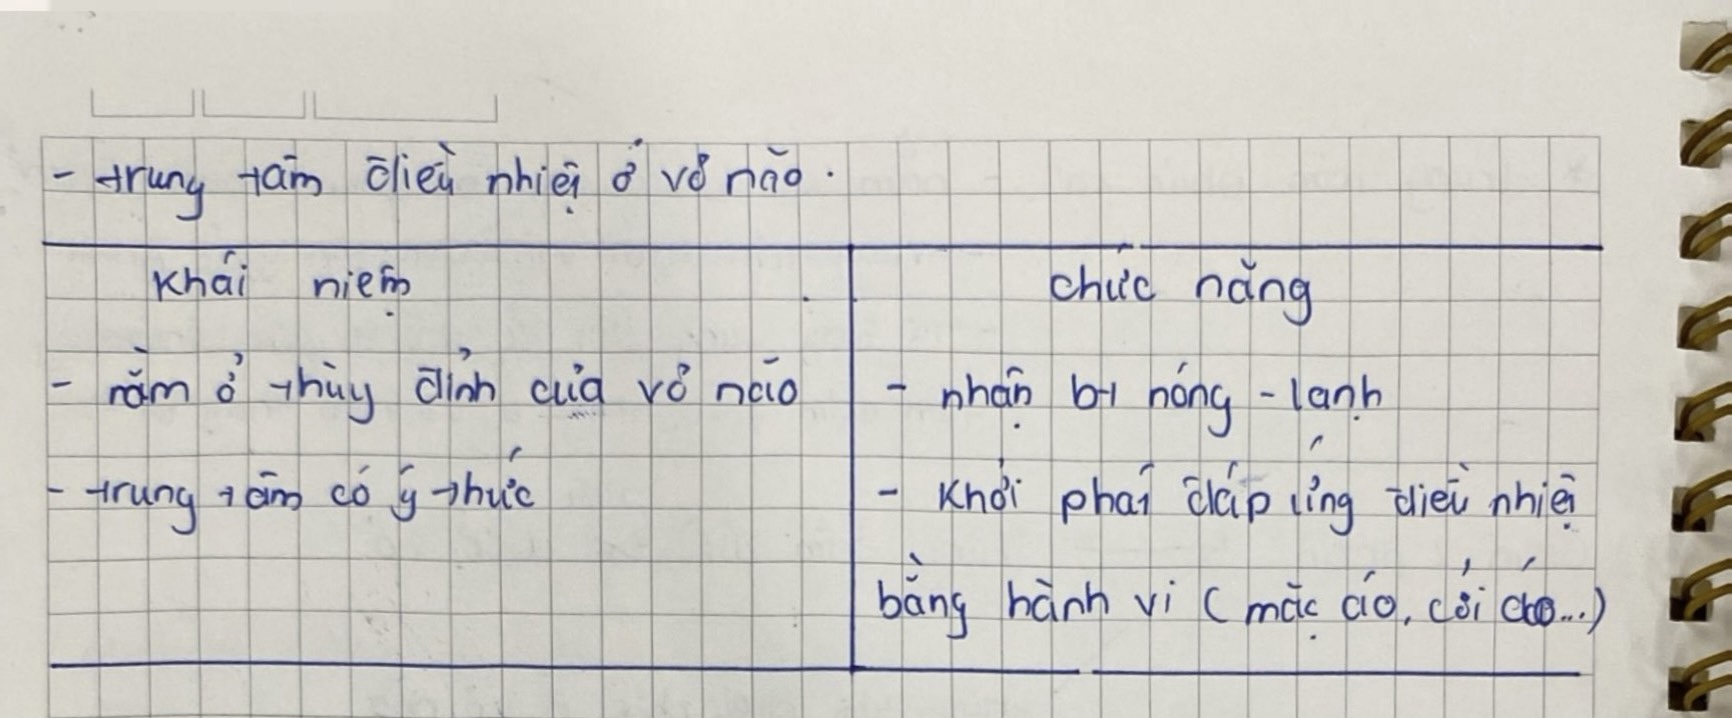 - trung tâm điều nhiệt ở vỏ não.
Khái niệm
chức năng
- nằm ở thùy đỉnh của vỏ não
- nhận bt nóng - lạnh
- trung tâm có ý thức
- Khởi phát đáp ứng điều nhiệt
bằng hành vi (mặc áo, cởi áo...)